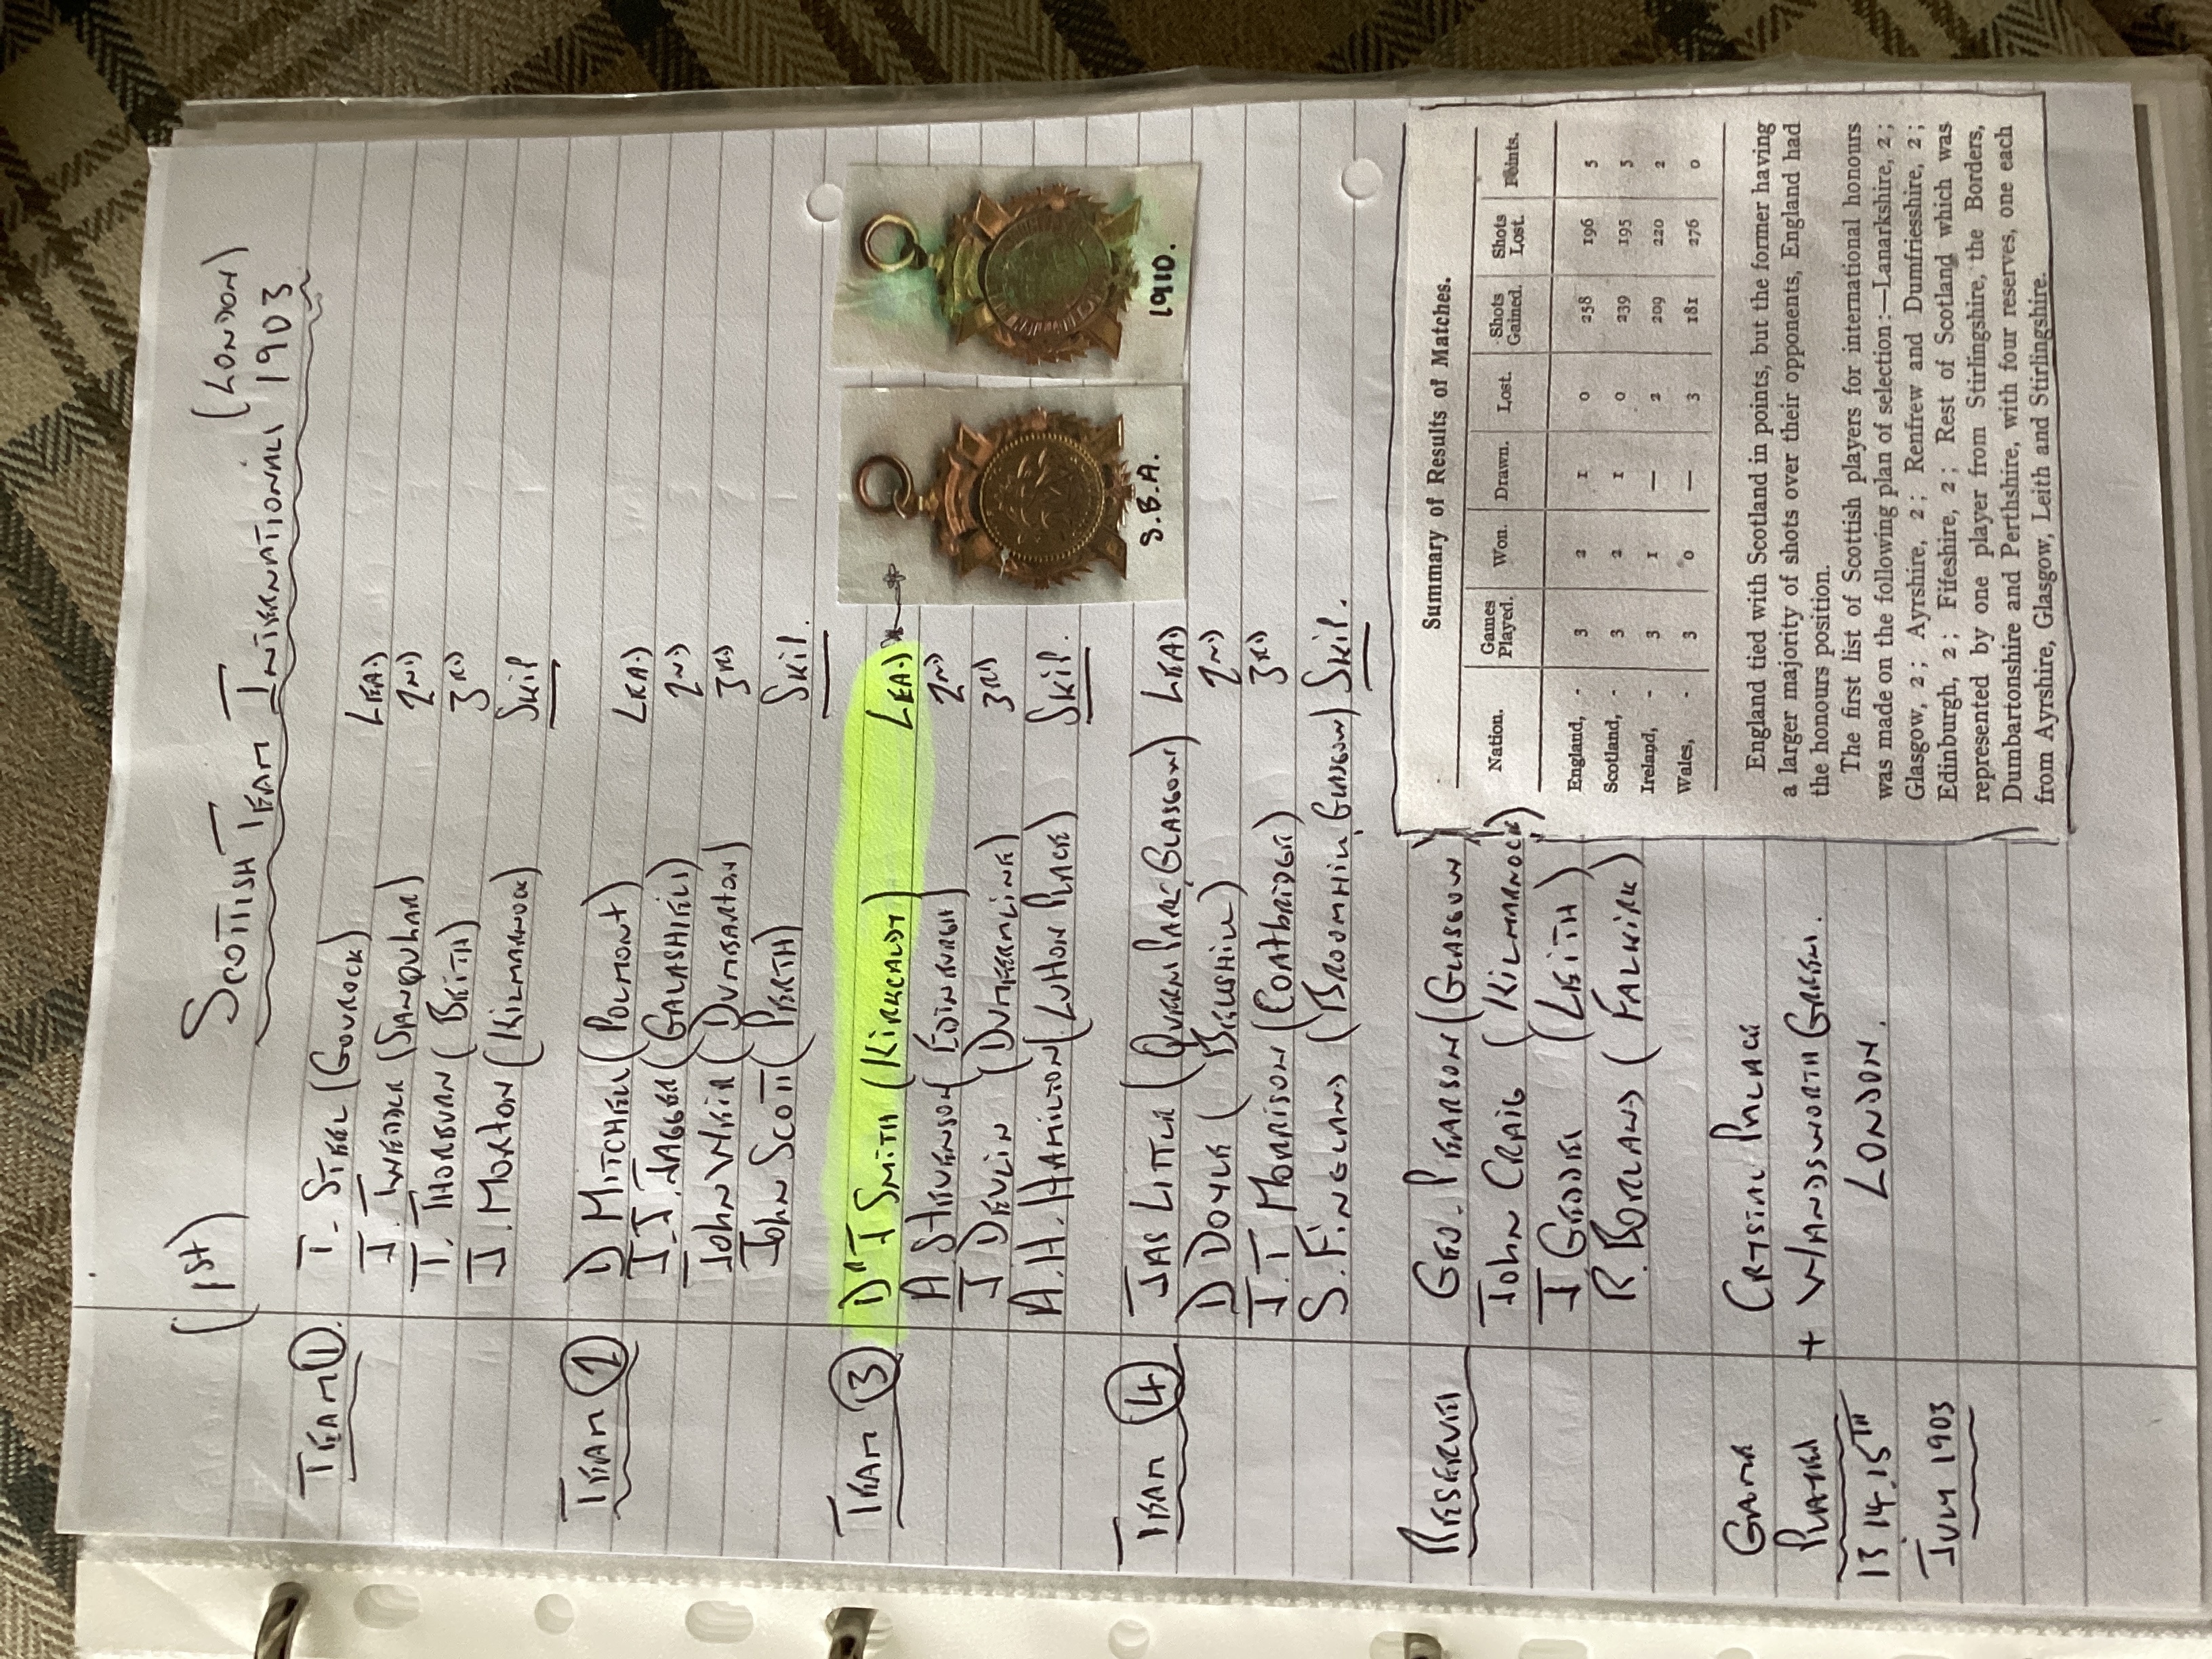 (1st) SCOTTISH TEAM INTERNATIONALS (LONDON)
1903
TEAM 1. T. STEEL (GOUROCK) LEAD
J. T. WEDDER (SANQUHAR) 2ND
T. THORBURN (BEITH) 3RD
J. MORTON (KILMARNOCK) SKIP
TEAM 2 D MITCHELL (POLMONT) LEAD
J J. JAGGER (GALASHIELS) 2ND
JOHN WEIR (DUMBARTON) 3RD
JOHN SCOTT (PERTH) SKIP.
TEAM 3 DR J SMITH (KIRKCALDY) LEAD
A STEVENSON (EDINBURGH) 2ND
J DEVLIN (DUMFERMLINE) 3RD
A.H. HAMILTON (LUTTON PLACE) SKIP.
S.B.A. 1910.
TEAM 4 JAS LITTLE (QUEENS PARK, GLASGOW) LEAD
D DOYLE (BELLSHILL) 2ND
J. T MORRISON (COATBRIDGE) 3RD
S. FINGLAND (BROOMHILL, GLASGOW) SKIP.
RESERVES GEO. PEARSON (GLASGOW)
JOHN CRAIG (KILMARNOCK)
J GEDDES (LEITH)
R. BORLAND (FALKIRK)
GAME CRYSTAL PALACE
PLAYED + WANDSWORTH GREENS.
13 14. 15TH LONDON.
JULY 1903
Summary of Results of Matches.
Nation. Games Played. Won. Drawn. Lost. Shots Gained. Shots Lost. Points.
England, - 3 2 1 0 258 196 5
Scotland, - 3 2 1 0 239 195 5
Ireland, - 3 1 — 2 209 220 2
Wales, - 3 0 — 3 181 276 0
England tied with Scotland in points, but the former having
a larger majority of shots over their opponents, England had
the honours position.
The first list of Scottish players for international honours
was made on the following plan of selection:—Lanarkshire, 2;
Glasgow, 2; Ayrshire, 2; Renfrew and Dumfriesshire, 2;
Edinburgh, 2; Fifeshire, 2; Rest of Scotland which was
represented by one player from Stirlingshire, the Borders,
Dumbartonshire and Perthshire, with four reserves, one each
from Ayrshire, Glasgow, Leith and Stirlingshire.